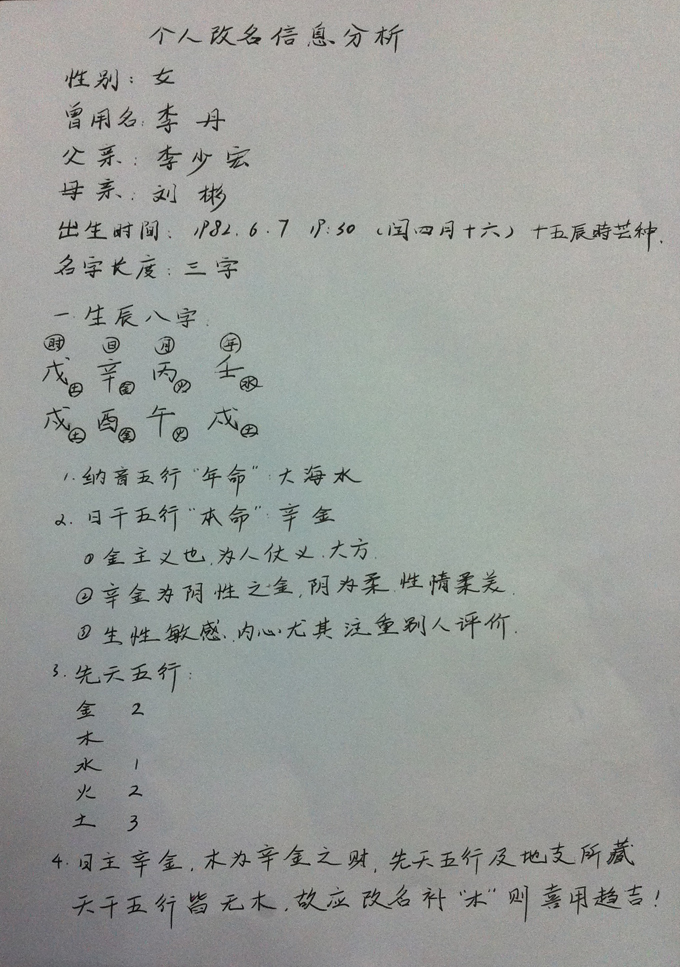 个人改名信息分析
性别：女
曾用名：李丹
父亲：李少宏
母亲：刘彬
出生时间：1982.6.7 19:30（闰四月十六）十五辰時芒种.
名字长度：三字
一.生辰八字.
时 日 月 年
戊土 辛金 丙火 壬水
戌土 酉金 午火 戌土
1.纳音五行“年命”：大海水
2.日干五行“本命”：辛金
①金主义也,为人仗义.大方.
②辛金为阴性之金,阴为柔.性情柔美.
③生性敏感、内心尤其注重别人评价.
3.先天五行：
金 2
木
水 1
火 2
土 3
4.日主辛金,木为辛金之财,先天五行及地支所藏
天干五行皆无木,故应改名补“木”则喜用趋吉！